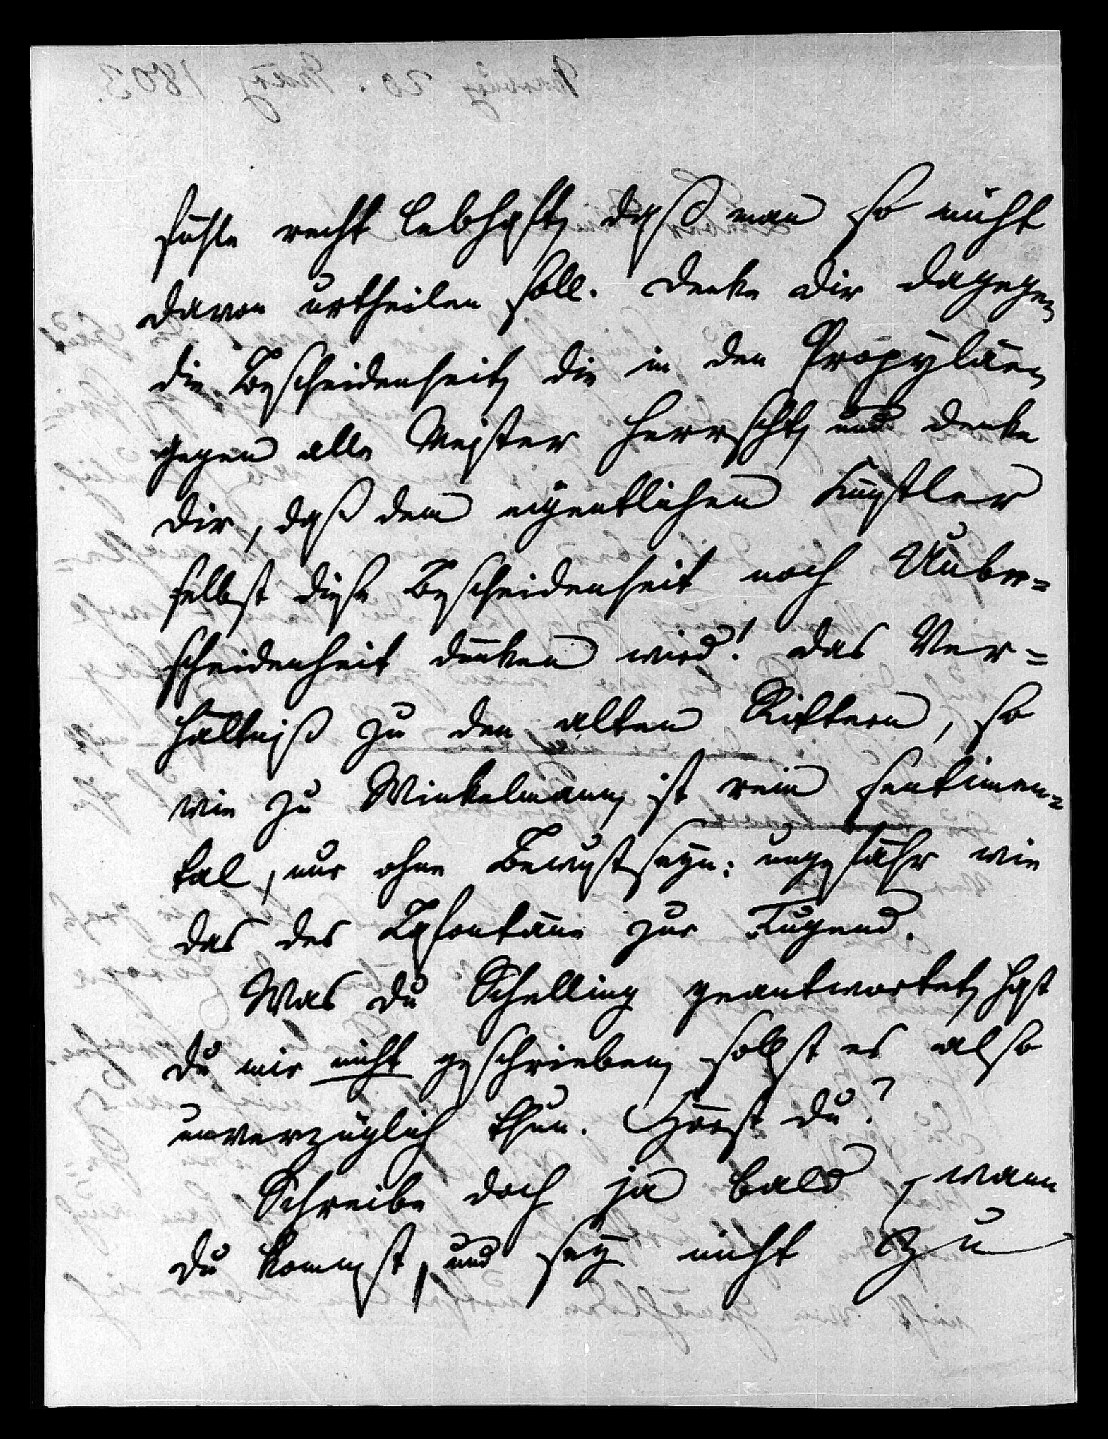 fühle recht lebhaft, daß man so nicht
davon urtheilen soll. Denke dir dagegen
die Bescheidenheit, die in den Propyläen,
gegen alle Meister herrscht, und denke
dir, daß dem eigentlichen Künstler
selbst diese Bescheidenheit noch Unbe-
scheidenheit dünken wird! Das Ver-
hältniß zu den alten Rittern, so
wie zu Winkelmann, ist rein sentimen-
tal, nur ohne Bewußtseyn: ungefähr wie
das des Lafontaine zur Tugend.
Was du Schelling geantwortet, hast
du mir nicht geschrieben, sollst es also
unverzüglich thun. Hörst du?
Schreibe doch ja bald, wann
du kommst, und sey nicht zu